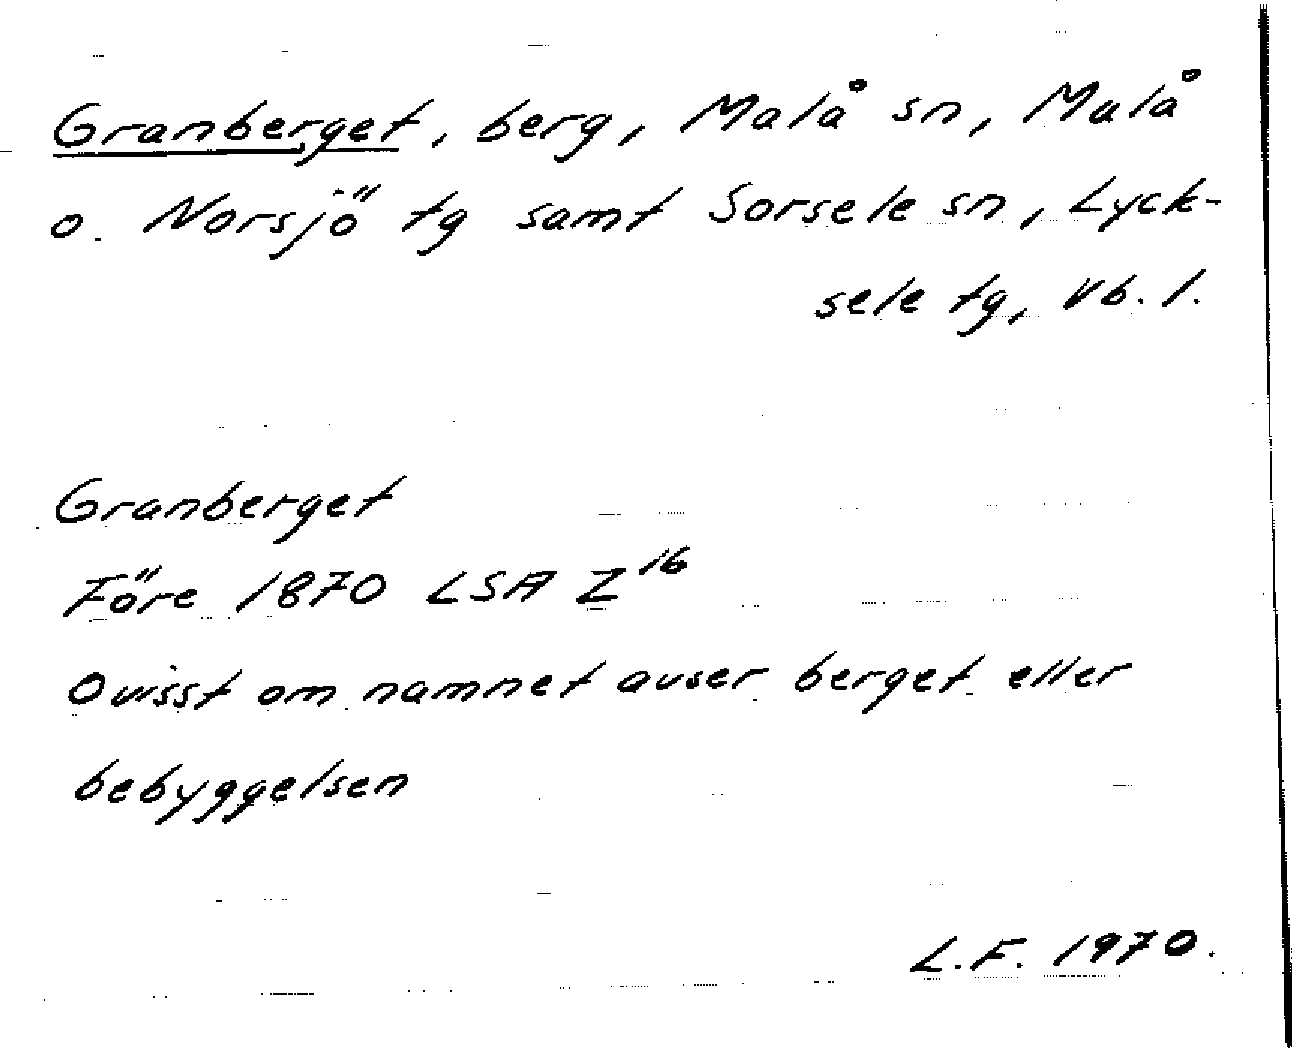 Granberget, berg, Malå sn, Malå
o. Norsjö tg samt Sorsele sn, Lyck-
sele tg, Vb. l.
Granberget
Före 1870 LSA Z¹⁶
Ovisst om namnet avser berget eller
bebyggelsen
L.F. 1970.